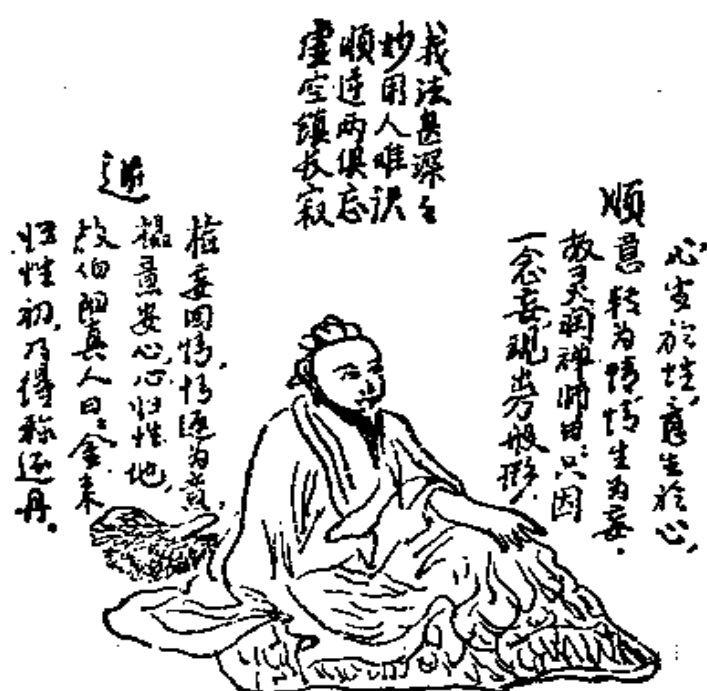 我法甚深々
妙用人难识
順逆两俱忘
虚空鎮长寂
順
心生於性,意生於心,
意转为情,情生为妄.
故灵润禅师曰:只因
一念妄,现出万般形.
逆
检妄回情,情返为意,
摄意安心,心归性地,
故伯阳真人曰:金来
归性初,乃得称还丹。